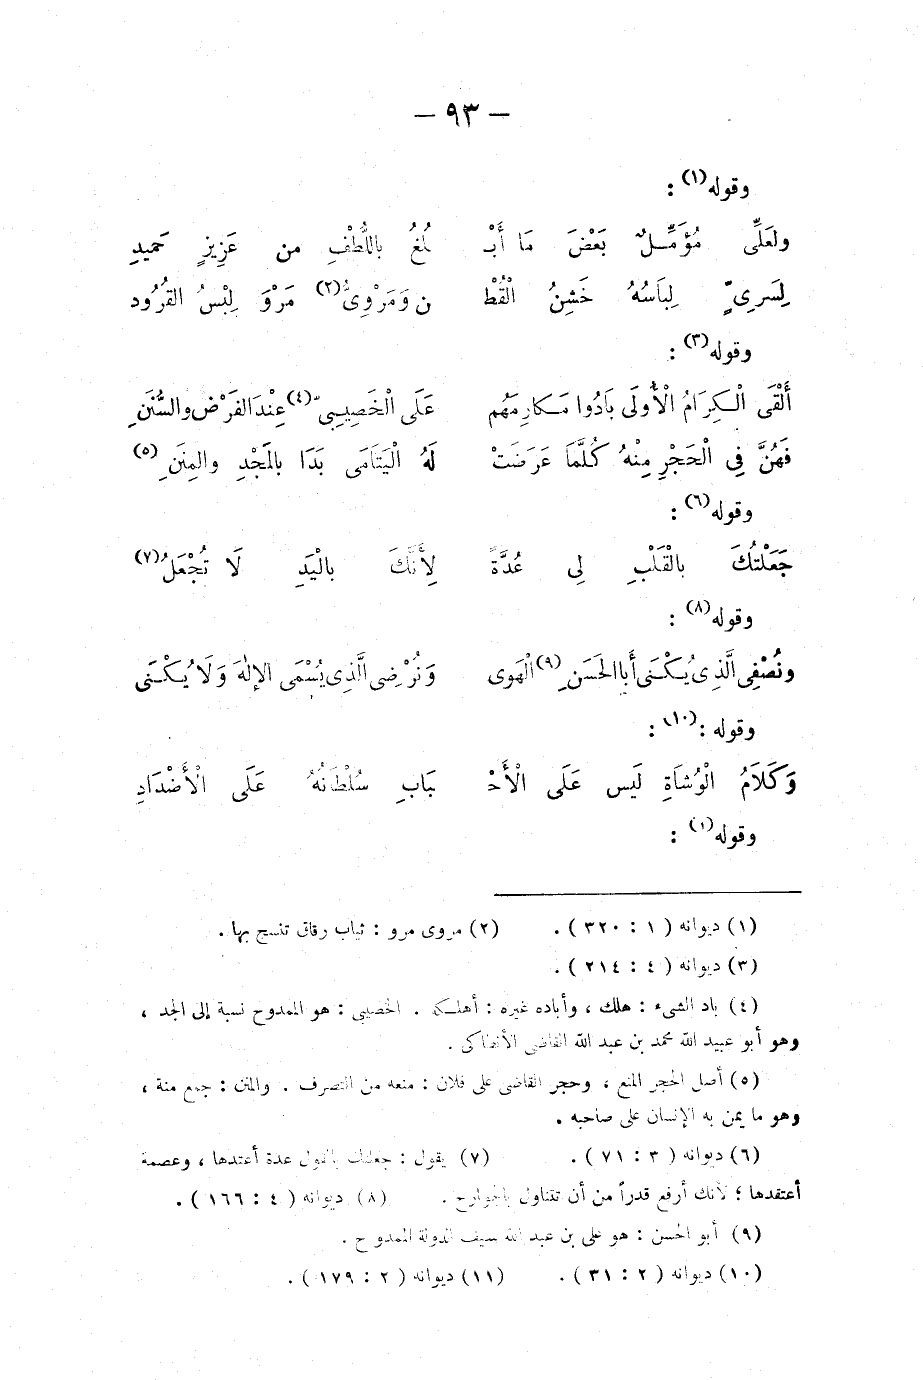 — ٩٣ —
وقوله(١) :
ولَعَلِّى مُؤَمِّلٌ بَعْضَ مَا أَبْـ لُغُ بِاللُّطْفِ من عَزِيزٍ حَمِيدِ
لِسَرِىٍّ لِبَاسُهُ خَشِنُ الْقُطْ نِ وَمَرْوِىُّ(٢) مَرْوَ لِبْسُ القُرُود
وقوله(٣) :
أَلْقَى الْكِرَامُ الْأُولَى بَادُوا مَكَارِمَهُم عَلَى الْخَصِيبِىِّ(٤) عِنْدَ الفَرْضِ والسُّنَنِ
فَهُنَّ فِى الْحَجْرِ مِنْهُ كُلَّمَا عَرَضَتْ لَهُ الْيَتَامَى بَدَا بالمَجْدِ والمِنَنِ(٥)
وقوله(٦) :
جَعَلْتُكَ بالْقَلْبِ لِى عُدَّةً لِأَنَّكَ بالْيَدِ لَا تُجْعَلُ(٧)
وقوله(٨) :
ونُصْفِى الَّذِى يُكْنَى أَبَا الحَسَنِ(٩) الْهَوى وَنُرْضِى الَّذِى يُسْمَى الإِلٰهَ وَلَا يُكْنَى
وقوله :(١٠) :
وَكَلَامُ الْوُشَاةِ لَيس عَلَى الْأَحْ بَابِ سُلْطَانُهُ عَلَى الْأَضْدَادِ
وقوله(١) :
(١) ديوانه ( ١ : ٣٢٠ ) . (٢) مروى مرو : ثياب رقاق تنسج بها .
(٣) ديوانه ( ٤ : ٢١٤ ) .
(٤) باد الشىء : هلك ، وأباده غيره : أهلكه . الخصيبى : هو الممدوح نسبة إلى الجد ،
وهو أبو عبيد الله محمد بن عبد الله القاضى الأنطاكى .
(٥) أصل الحجر المنع ، وحجر القاضى على فلان : منعه من التصرف . والمنن : جمع منة ،
وهو ما يمن به الإنسان على صاحبه .
(٦) ديوانه ( ٣ : ٧١ ) . (٧) يقول : جعلتك بالقول عدة أعتدها ، وعصمة
أعتقدها ؛ لأنك أرفع قدراً من أن تتناول بالجوارح . (٨) ديوانه ( ٤ : ١٦٦ ) .
(٩) أبو الحسن : هو على بن عبد الله سيف الدولة الممدوح .
(١٠) ديوانه ( ٢ : ٣١ ) . (١١) ديوانه ( ٢ : ١٧٩ ) .